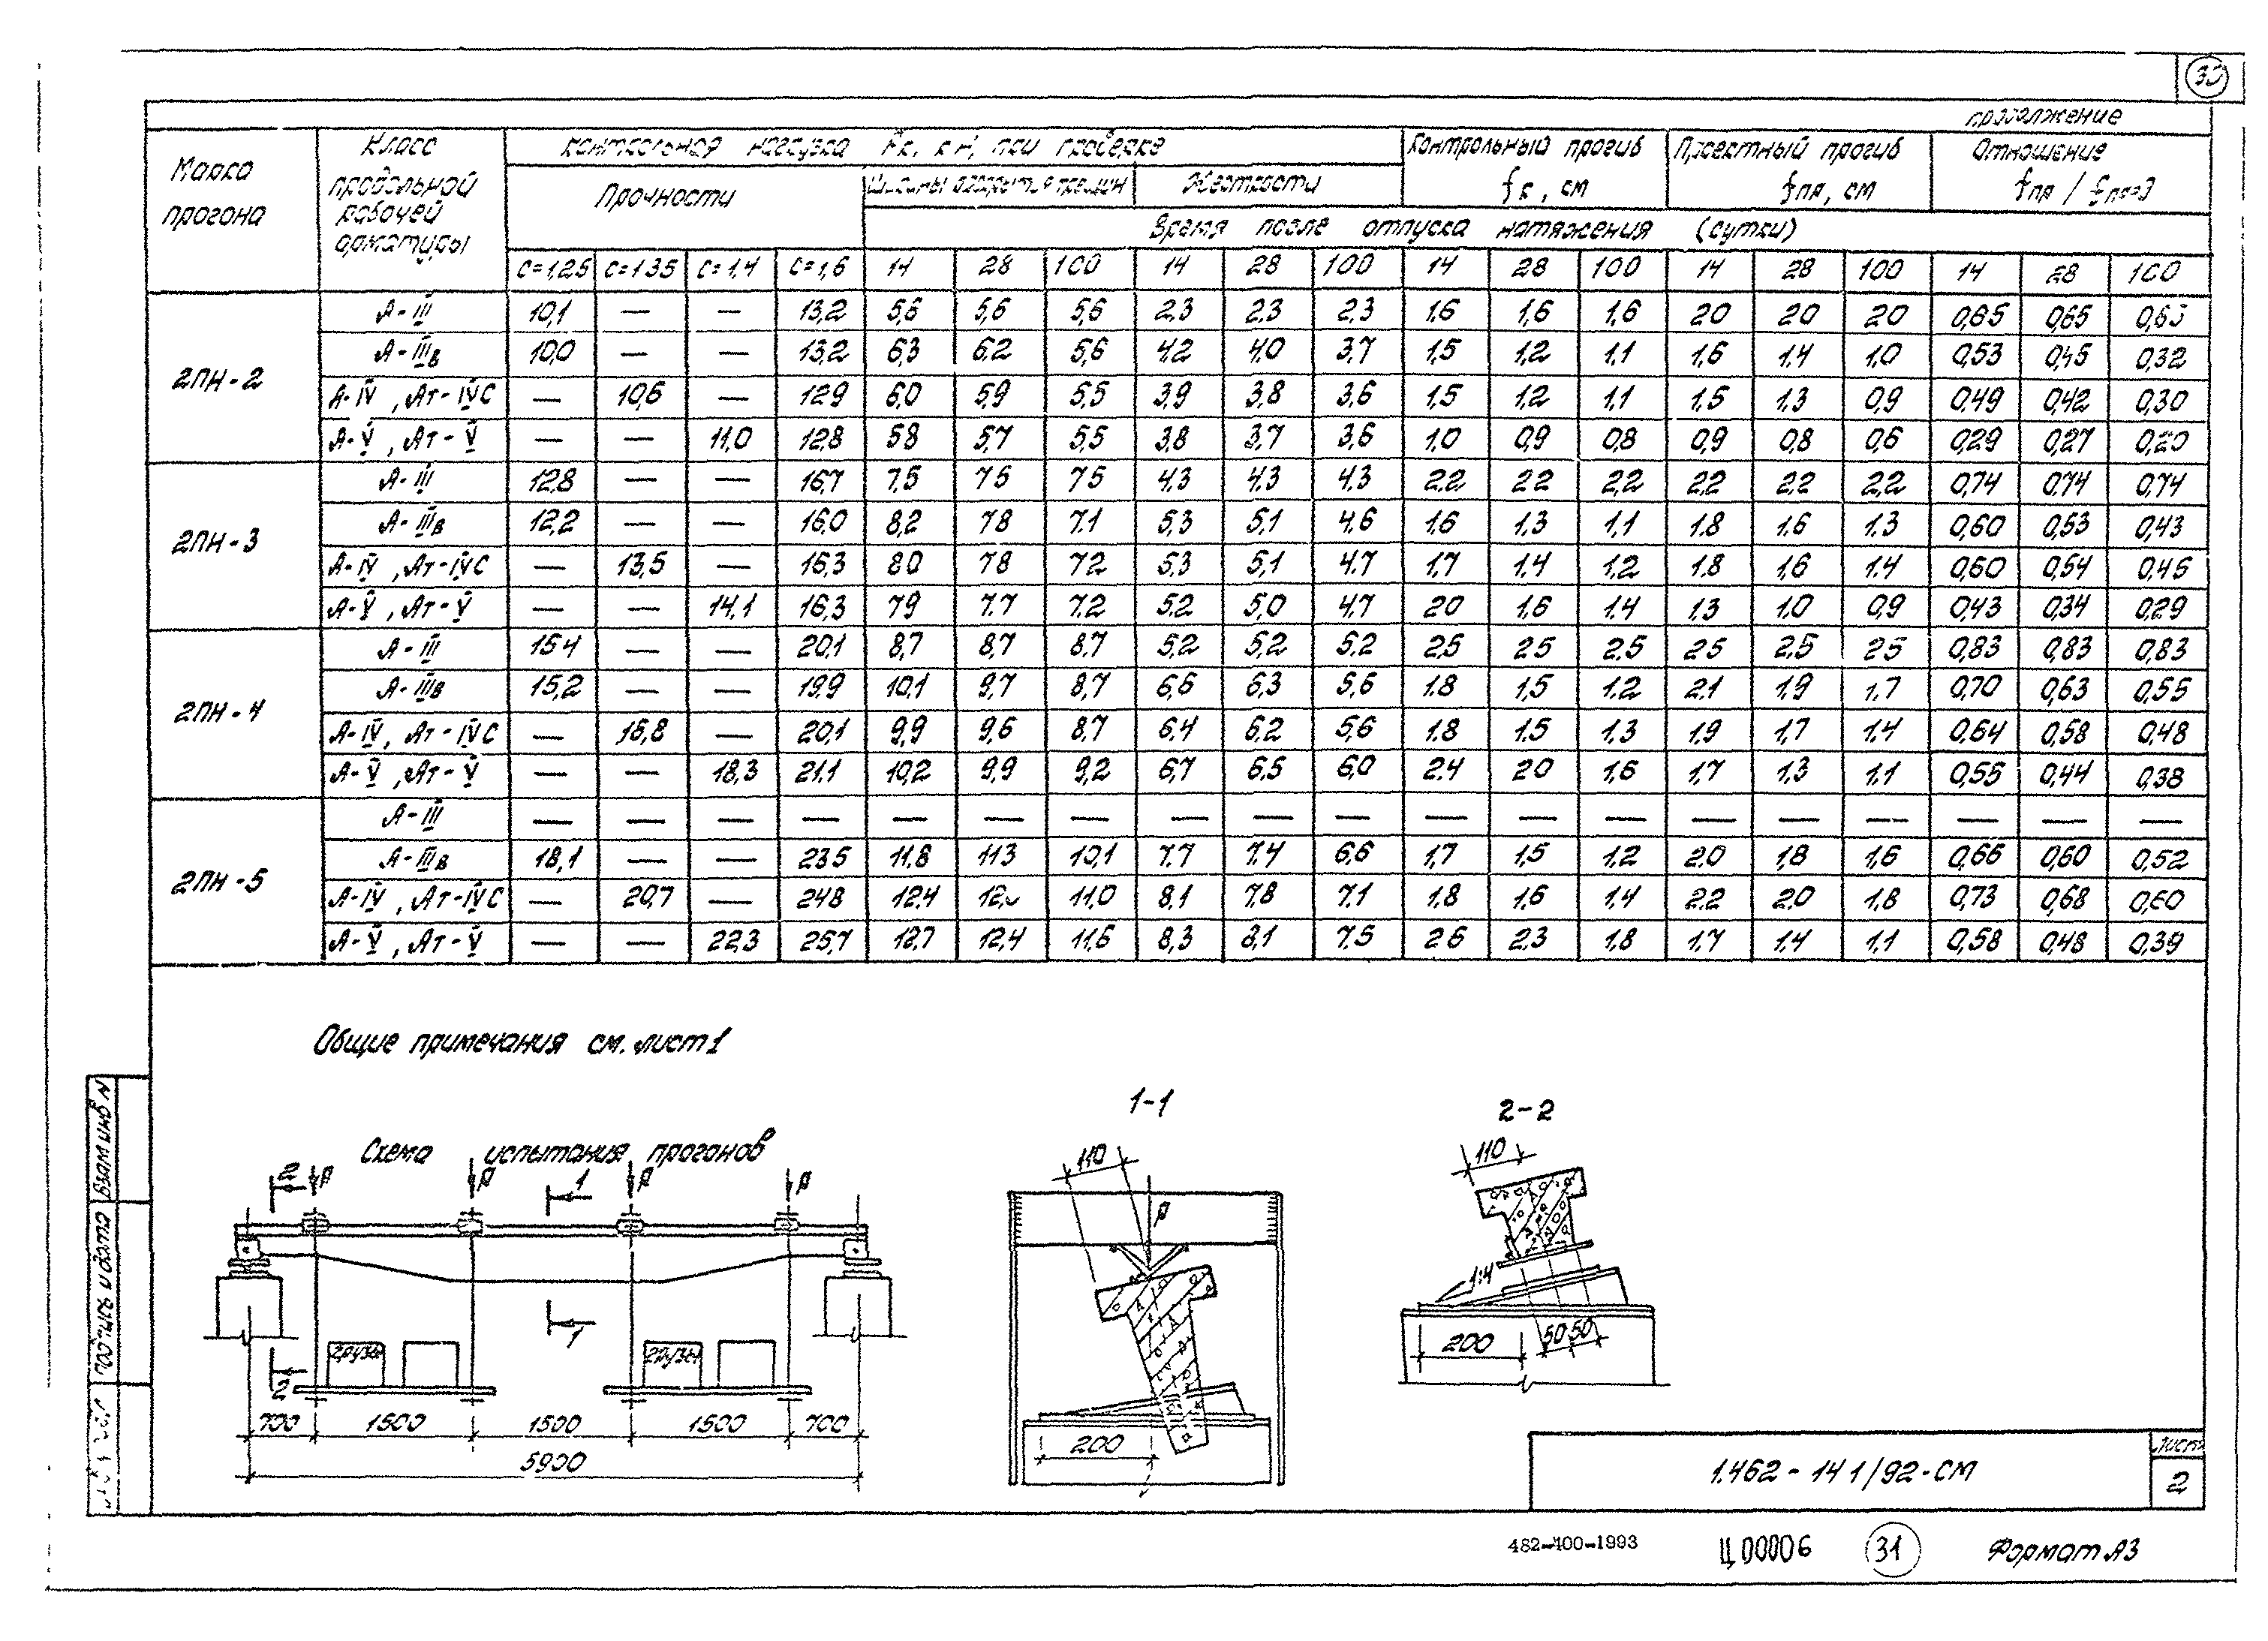 30
продолжение
Марка прогона
Класс продольной рабочей арматуры
контрольная нагрузка Рк, кН, при проверке
Контрольный прогиб fк, см
Проектный прогиб fпр, см
Отношение fпр / fпред
Прочности
Ширины раскрытия трещин
Жесткости
Время после отпуска натяжения (сутки)
С=1,25 С=1,35 С=1,4 С=1,6 14 28 100 14 28 100 14 28 100 14 28 100 14 28 100
2ПН-2
А-III 10,1 — — 13,2 5,6 5,6 5,6 2,3 2,3 2,3 1,6 1,6 1,6 2,0 2,0 2,0 0,65 0,65 0,65
А-IIIв 10,0 — — 13,2 6,3 6,2 5,6 4,2 4,0 3,7 1,5 1,2 1,1 1,6 1,4 1,0 0,53 0,45 0,32
А-IV, Ат-IVС — 10,6 — 12,9 6,0 5,9 5,5 3,9 3,8 3,6 1,5 1,2 1,1 1,5 1,3 0,9 0,49 0,42 0,30
А-V, Ат-V — — 11,0 12,8 5,8 5,7 5,5 3,8 3,7 3,6 1,0 0,9 0,8 0,9 0,8 0,6 0,29 0,27 0,20
2ПН-3
А-III 12,8 — — 16,7 7,5 7,5 7,5 4,3 4,3 4,3 2,2 2,2 2,2 2,2 2,2 2,2 0,74 0,74 0,74
А-IIIв 12,2 — — 16,0 8,2 7,8 7,1 5,3 5,1 4,6 1,6 1,3 1,1 1,8 1,6 1,3 0,60 0,53 0,43
А-IV, Ат-IVС — 13,5 — 16,3 8,0 7,8 7,2 5,3 5,1 4,7 1,7 1,4 1,2 1,8 1,6 1,4 0,60 0,54 0,46
А-V, Ат-V — — 14,1 16,3 7,9 7,7 7,2 5,2 5,0 4,7 2,0 1,6 1,4 1,3 1,0 0,9 0,43 0,34 0,29
2ПН-4
А-III 15,4 — — 20,1 8,7 8,7 8,7 5,2 5,2 5,2 2,5 2,5 2,5 2,5 2,5 2,5 0,83 0,83 0,83
А-IIIв 15,2 — — 19,9 10,1 9,7 8,7 6,6 6,3 5,6 1,8 1,5 1,2 2,1 1,9 1,7 0,70 0,63 0,55
А-IV, Ат-IVС — 16,8 — 20,1 9,9 9,6 8,7 6,4 6,2 5,6 1,8 1,5 1,3 1,9 1,7 1,4 0,64 0,58 0,48
А-V, Ат-V — — 18,3 21,1 10,2 9,9 9,2 6,7 6,5 6,0 2,4 2,0 1,6 1,7 1,3 1,1 0,55 0,44 0,38
2ПН-5
А-III — — — — — — — — — — — — — — — — — — —
А-IIIв 18,1 — — 23,5 11,8 11,3 10,1 7,7 7,4 6,6 1,7 1,5 1,2 2,0 1,8 1,6 0,66 0,60 0,52
А-IV, Ат-IVС — 20,7 — 24,8 12,4 11,0 8,1 7,8 7,1 1,8 1,6 1,4 2,2 2,0 1,8 0,73 0,68 0,60
А-V, Ат-V — — 22,3 25,7 12,7 12,4 11,6 8,3 8,1 7,5 2,6 2,3 1,8 1,7 1,4 1,1 0,58 0,48 0,39
Общие примечания см. лист 1
Схема испытания прогонов
2 Р Р 1 Р Р
грузы грузы
1
2
700 1500 1500 1500 700
5900
1-1
110
Р
200
2-2
110
1:4
200 50 50
Взам инв N
Подпись и дата
1.462-14 1/92-СМ
Лист
2
482-400-1993
Ц00006
31
Формат А3